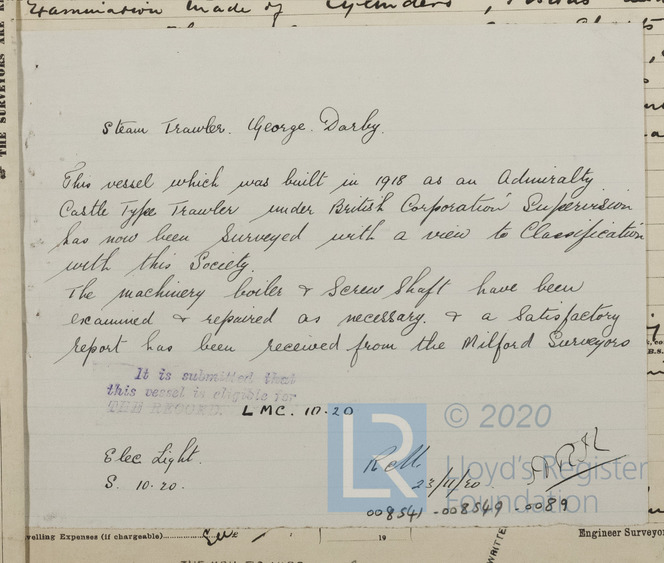 Examination made of Cylinders,
THE SURVEYORS ARE
Steam Trawler. George. Darby.
This vessel which was built in 1918 as an Admiralty
Castle Type Trawler under British Corporation Supervision
has now been Surveyed with a view to Classification
with this Society.
The machinery boiler & Screw Shaft have been
examined & repaired as necessary. & a Satisfactory
report has been received from the Milford Surveyors
It is submitted that
this vessel is eligible for
THE RECORD. LMC. 10.20
Elec Light.
S. 10.20.
23/11/20
008541-008549-0089
LR
© 2020
Lloyd's Register
Foundation
velling Expenses (if chargeable)
19
WRITTE
Engineer Surveyor